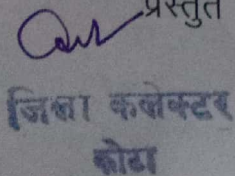 प्रस्तुत
जिला कलेक्टर
कोटा